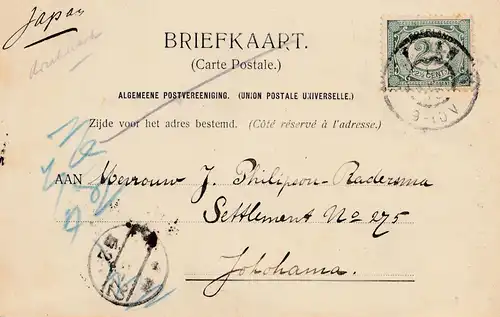 Japan
BRIEFKAART.
(Carte Postale.)
ALGEMEENE POSTVEREENIGING. (UNION POSTALE UNIVERSELLE.)
Zijde voor het adres bestemd. (Côté réservé à l'adresse.)
AAN Mevrouw J. Philipson-Radersma
Settlement No 275
Jokohama.